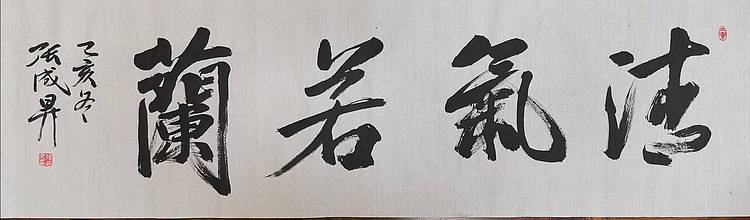 清氣若蘭
乙亥冬
張成昇